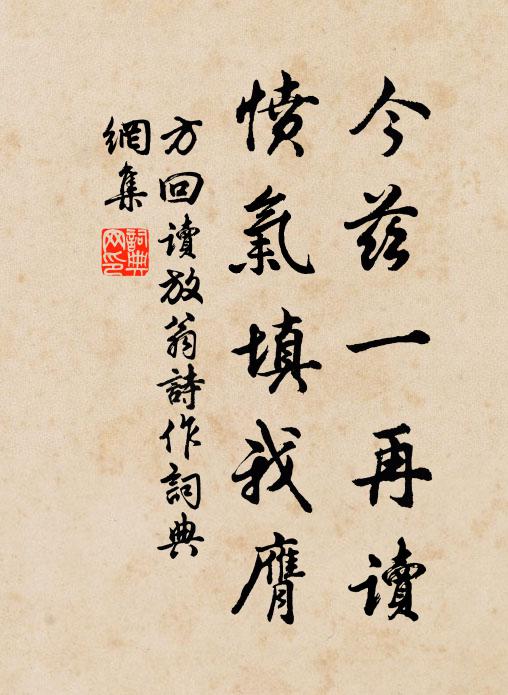 今茲一再讀
憤氣填我膺
方回讀放翁詩作詞典
網集
詞典
網印